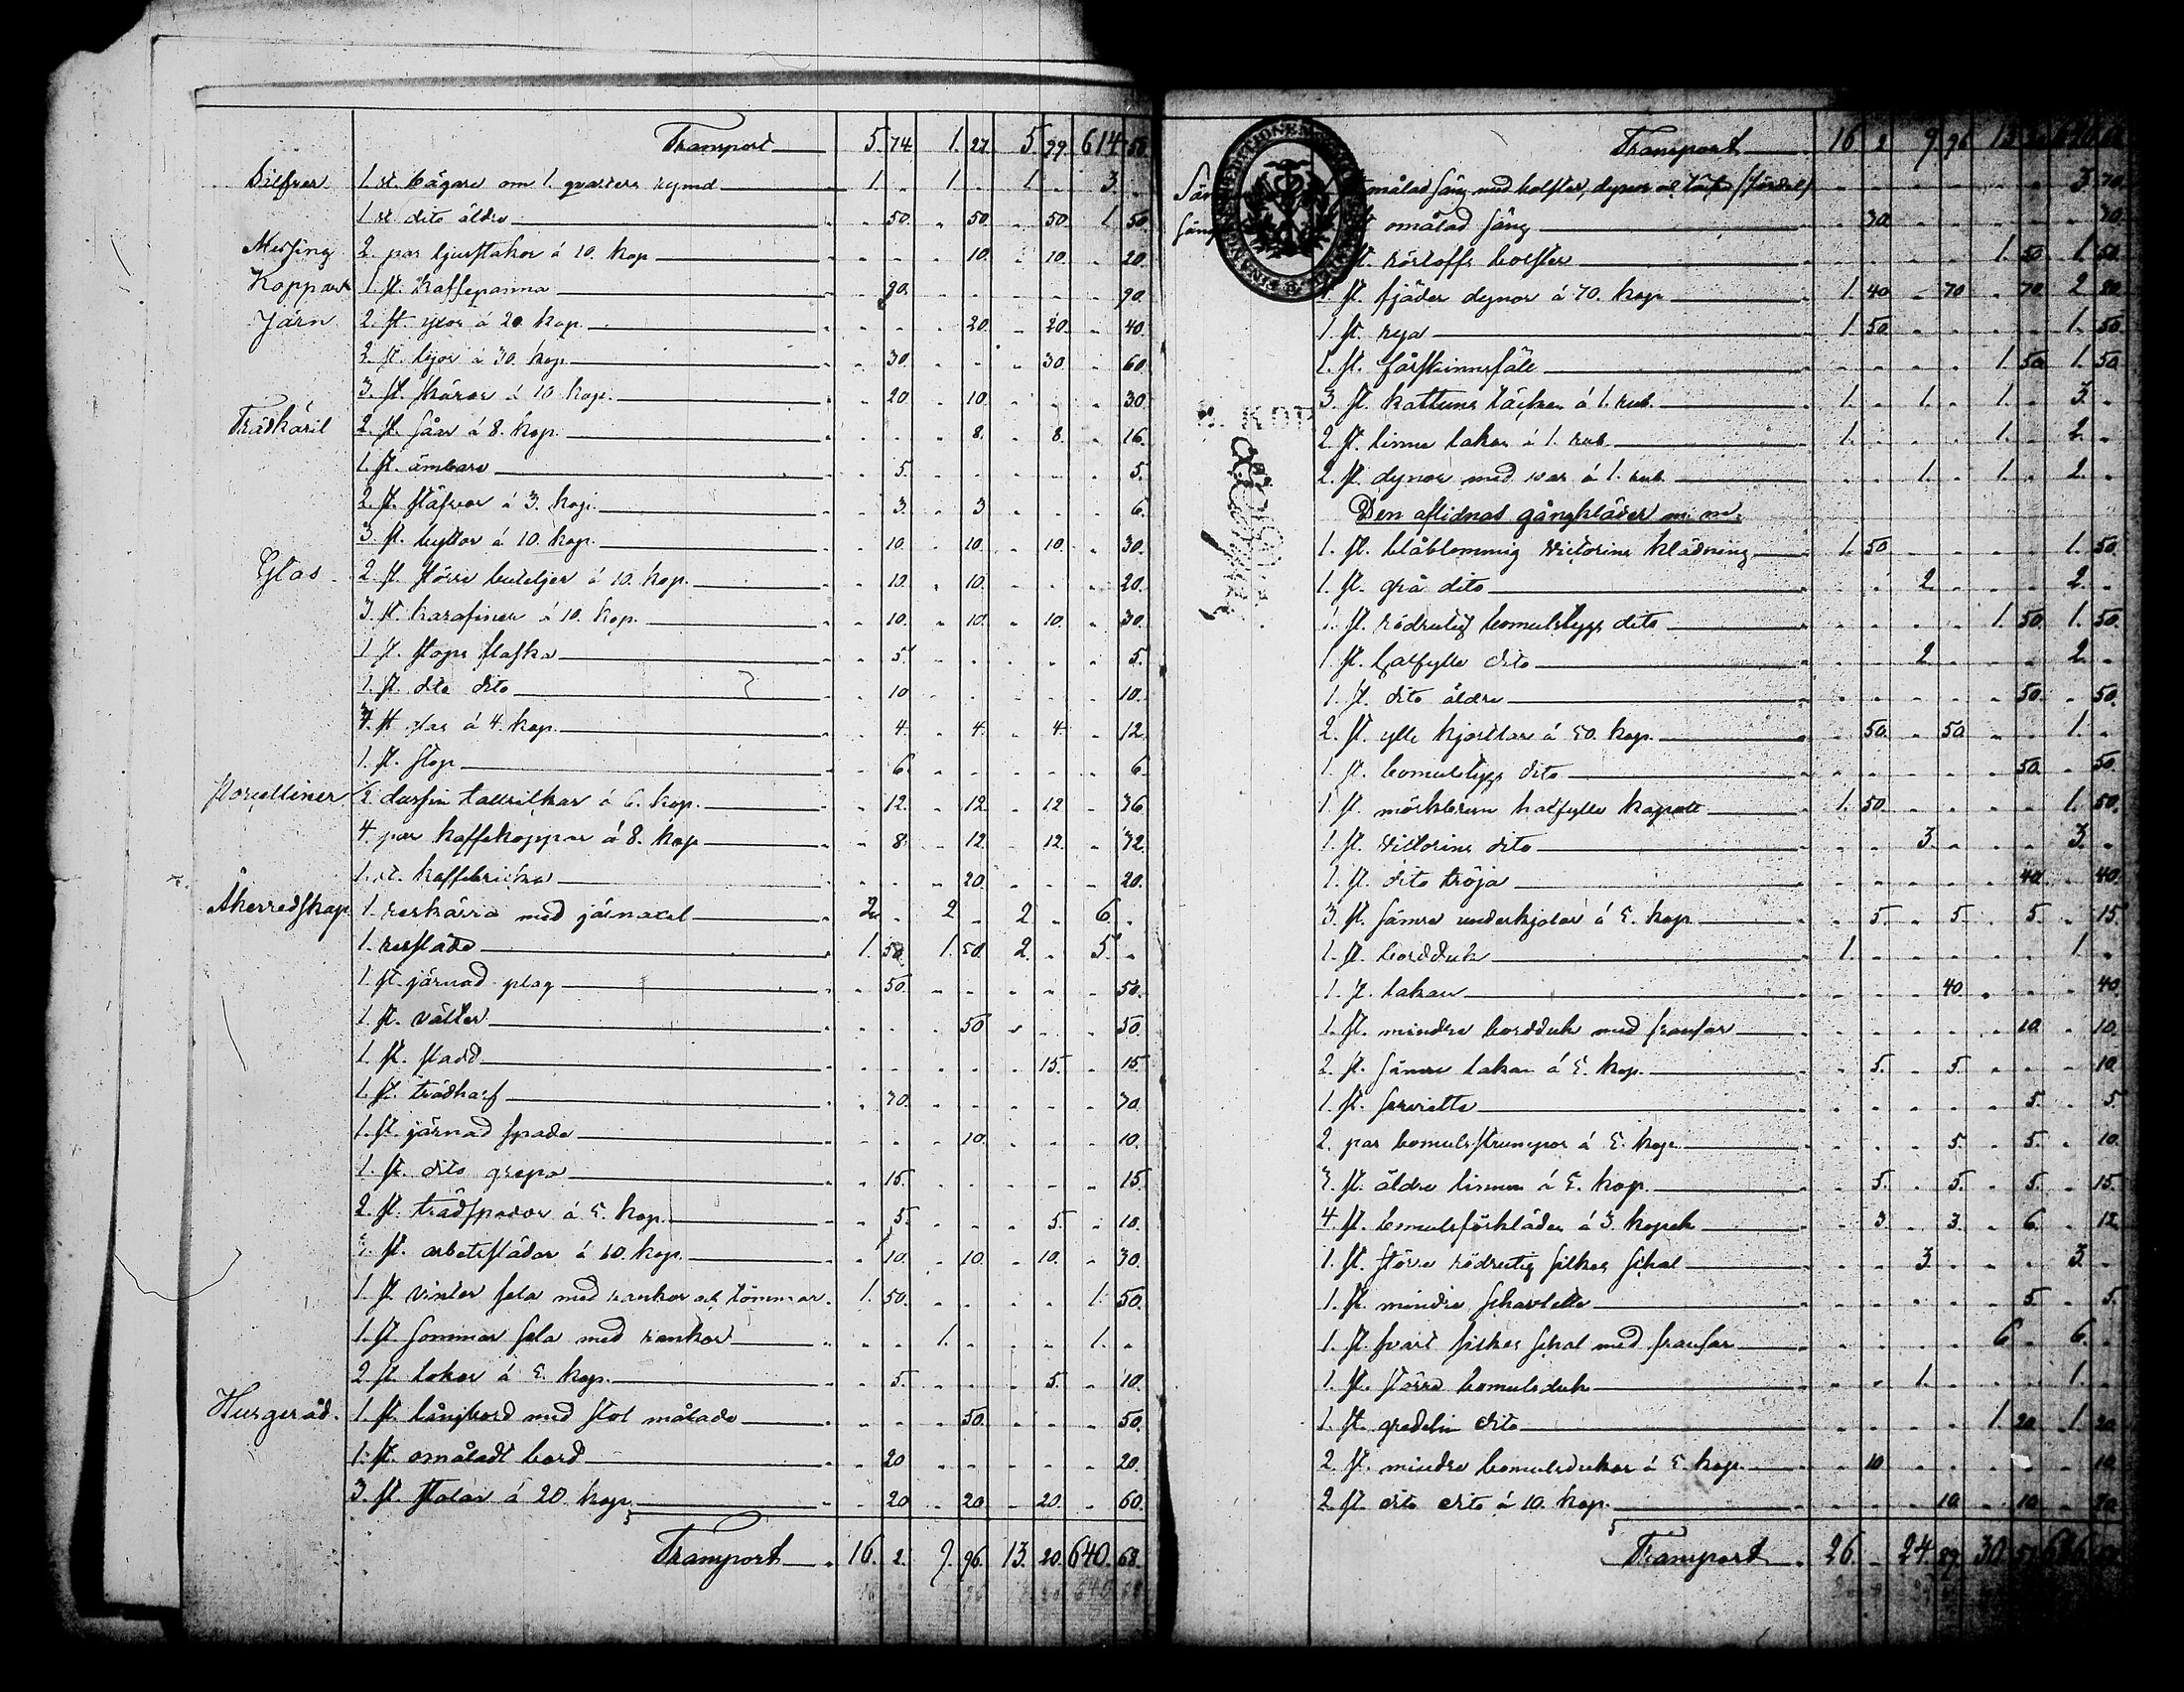 Transport 5. 74. 1. 27. 5. 99. 614. 50
Silfver 1 st. bägare om 1. qvarters rymd 1. - 1. - 1. - 3. -
1 st dito äldre - 50. - 50. - 50. 1. 50.
Messing 2. par ljusstakar á 10. kop - - - 10. - 10. - 20.
Koppar 1. st. Kaffepanna - 90. - - - - - 90.
Järn 2. st. yxor á 20. kop. - - - 20. - 20. - 40.
2. st. lijor á 30. kop. - 30. - - - 30. - 60.
3. st. skäror á 10. kop. - 20. - 10. - - - 30.
Trädkäril 2. st. såar á 8. kop. - - - 8. - 8. - 16.
1. st. ämbare - 5. - - - - - 5.
2. st. stäfvor á 3. kop. - 3. - 3. - - - 6.
3. st. byttor á 10. kop. - 10. - 10. - 10. - 30.
Glas. 2. st. större buteljer á 10. kop. - 10. - 10. - - - 20.
3. st. karafiner á 10. kop. - 10. - 10. - 10. - 30.
1. st. stops flaska - 5. - - - - - 5.
1. st. dito dito - 10. - - - - - 10.
3. st. glas á 4. kop. - 4. - 4. - 4. - 12.
1. st. stop - 6. - - - - - 6.
Porcelliner 1/2 dussin tallrikar á 6. kop. - 12. - 12. - 12. - 36.
4. par kaffekoppar á 8. kop - 8. - 12. - 12. - 32.
1. st. kaffebricka - - - 20. - - - 20.
Åkerredskap 1. reskärra med järnaxel 2. - 2. - 2. - 6. -
1. ressläde 1. 50. 1. 50. 2. - 5. -
1. st. järnad plog - 50. - - - - - 50.
1. st. välter - - - 50. - - - 50.
1. st. sladd - - - - - 15. - 15.
1. st. trädharf - 30. - - - - - 30.
1. st. järnad spade - - - 10. - - - 10.
1. st. dito grepa - 15. - - - - - 15.
2. st. trädspadar á 5. kop. - 5. - - - 5. - 10.
3. st. arbetslädar á 10. kop. - 10. - 10. - 10. - 30.
1. st. vinter sela med rankor och tömmar. 1. 50. - - - - 1. 50.
1. st. sommar sela med rankor - - 1. - - - 1. -
2. st. lokor á 5. kop. - 5. - - - 5. - 10.
Husgeråd. 1. st. långbord med stol målade - - - 50. - - - 50.
1. st. omåladt bord - 20 - - - - - 20.
3. st. stolar á 20. kop. - 20 - 20. - 20. - 60.
Transport 16. 2. 9. 96. 13. 20. 640. 68.
Transport 16 2 9. 96 13 20 640 68
målad säng med bolster, dynor och täcke - - - - - - 3. 70.
omålad säng - 30. - - - - - 30.
st. bolster - - - - 1. 50. 1. 50.
st. fjäder dynor á 70. kop 1. 40 - 70 - 70 2. 80
1. st. rya 1. 50. - - - - 1. 50.
1. st. fårskinnsfäll - - - - 1. 50. 1. 50
3. st. kattuns täcken á 1. rub. 1. - 1. - 1. - 3. -
2. st. linne lakan á 1. rub. 1. - - - 1. - 2. -
2. st. dynor med var á 1. rub. - - 1. - 1. - 2. -
Den aflidnas gångkläder m. m.
1. st. blåblommig victorins klädning 1. 50. - - - - 1. 50.
1. st. grå dito - - 2. - - - 2. -
1. st. rödrutig bomulstygs dito - - - - 1. 50. 1. 50.
1. st. halfylle dito - - 2. - - - 2. -
1. st. dito äldre - - - - - 50. - 50.
2. st. ylle kjortlar á 50. kop. - 50. - 50. - - 1. -
1. st. bomulstygs dito - - - - - 50. - 50.
1. st. mörkbrun halfylle kapott 1. 50. - - - - 1. 50.
1. st. victorins dito - - 3. - - - 3. -
1. st. dito tröja - - - - - 40. - 40.
3. st. sämre underkjolar á 5. kop. - 5. - 5. - 5. - 15.
1. st. bordduk 1. - - - - - 1. -
1. st. lakan - - - 40. - - - 40.
1. st. mindre bordduk med fransar - - - - - 10. - 10.
2. st. sämre lakan á 5. kop. - 5. - 5. - - - 10.
1. st. serviette - - - - - 5. - 5.
2. par bomulsstrumpor á 5. kop. - - - 5. - 5. - 10.
3. st. äldre linnen á 5. kop. - 5. - 5. - 5. - 15.
4. st. bomulsförkläden á 3. kopek - 3. - 3. - 6. - 12.
1. st. större rödrutig silkes schal - - 3. - - - 3. -
1. st. mindre scharlette - - - - - 5. - 5.
1. st. svart silkes schal med fransar - - - - 6. - 6. -
1. st. större bomulsduk - - 1. - - - 1. -
1. st. gredelin dito - - - - 1. 20. 1. 20.
2. st. mindre bomulsdukar á 5. kop. - 10 - - - - - 10.
2. st. dito dito á 10. kop. - - - 10. - 10. - 20.
Transport 26. - 24 89. 30. 51 686